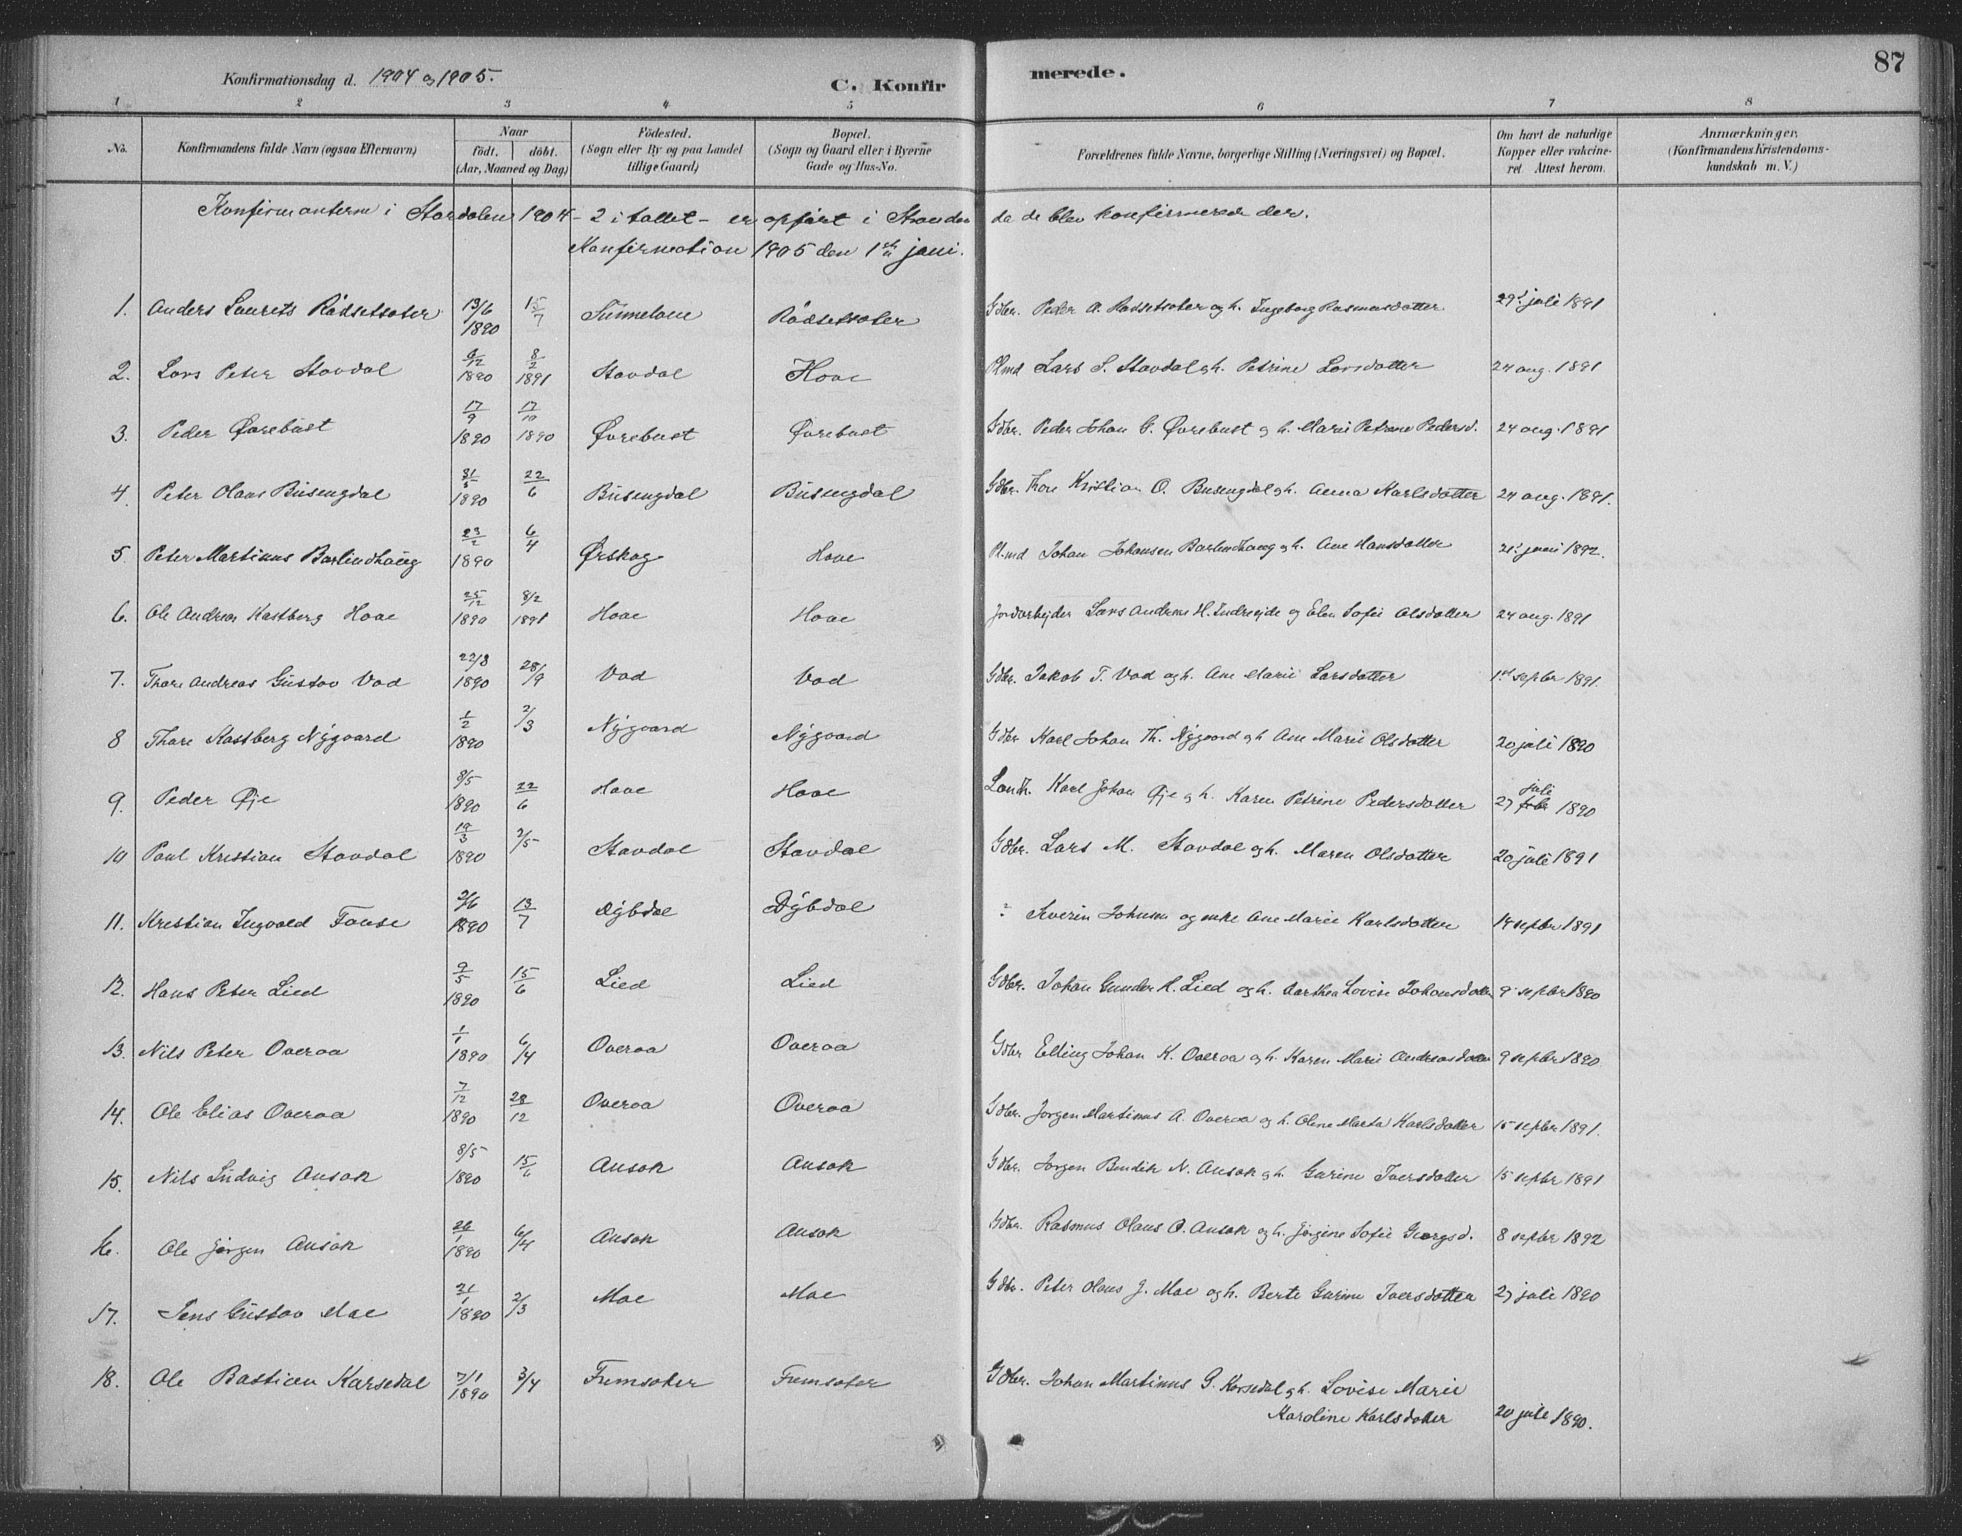 87
Konfirmationsdag d. 1904 og 1905.
C. Konfir merede.
1 2 3 4 5 6 7 8
No.
Konfirmandens fulde Navn (ogsaa Efternavn)
Naar
födt. döbt.
(Aar, Maaned og Dag)
Födested.
(Sogn eller By og paa Landet
tillige Gaard)
Bopæl.
(Sogn og Gaard eller i Byerne
Gade og Hus-No.
Forældrenes fulde Navne, borgerlige Stilling (Næringsvei) og Bopæl.
Om havt de naturlige
Kopper eller vakcine-
ret. Attest herom.
Anmærkninger.
(Konfirmandens Kristendoms-
kundskab m. V.)
Konfirmanterne i Stordalen 1904 - 2 i tallet - er opført i Stranden da de blev konfirmerede der.
Konfirmation 1905 den 1ste juni.
1. Anders Laurits Rödsetsæter 13/6 1890 15/7 Rödsetsæter Gdbr. Peder A. Rödsetsæter og h. Ingeborg Rasmusdatter 29de juli 1891
2. Lars Peter Stavdal 9/12 1890 8/2 1891 Stavdal Hove Plmd Lars S. Stavdal og h. Petrine Larsdatter 24 aug. 1891
3. Peder Øvrebust 17/9 1890 17/10 1890 Øvrebust Øvrebust Gdbr. Peder Johan C. Øvrebust og h. Marie Petrine Pedersd. 24 aug. 1891
4. Peter Olaus Busengdal 31/5 1890 22/6 Busengdal Busengdal Gdbr. Thore Kristian O. Busengdal og h. Anna Karlsdatter 24 aug. 1891.
5. Peter Martinus Barlindhaug 23/2 1890 6/4 Ørskog Hove Plmd Johan Johansen Barlindhaug og h. Ane Hansdatter 21de juni 1892.
6. Ole Andreas Kastberg Hove 25/12 1890 8/2 1891 Hove Hove Jordarbejder Lars Andreas H. Indreeide og Elen Sofie Olsdatter 24 aug. 1891
7. Thore Andreas Gustav Vad 22/8 1890 28/9 Vad Vad Gdbr. Jakob T. Vad og h. Ane Marie Larsdatter 1ste septbr 1891.
8 Thore Kastberg Nygaard 1/2 1890 2/3 Nygaard Nygaard Gdbr. Karl Johan Th. Nygaard og h. Ane Marie Olsdatter 20 juli 1890
9. Peder Øje 8/5 1890 22/6 Hove Hove Landh. Karl Johan Øje og h. Karen Petrine Pedersdatter 27 juli 1890
10 Paul Kristian Stavdal 19/3 1890 2/5 Stavdal Stavdal Gdbr. Lars M. Stavdal og h. Maren Olsdatter 20 juli 1891
11. Kristian Ingvald Fause 2/6 1890 13/7 Dybdal Dybdal ? Severin Johnsen og enke Ane Marie Karlsdatter 14 septbr 1891
12. Hans Peter Lied 9/5 1890 15/6 Lied Lied Gdbr. Johan Gunder H. Lied og h. Aarthea Lovise Johansdatter 9 septbr 1890
13. Nils Peter Overaa 1/1 1890 6/4 Overaa Overaa Gdbr Elling Johan K. Overaa og h. Karen Marie Andreasdatter 9 septbr 1890
14. Ole Elias Overaa 7/12 1890 28/12 Overaa Overaa Gdbr. Jørgen Martinus A. Overaa og h. Oline Marta Karlsdatter 15 septbr 1891.
15. Nils Ludvig Ansok 8/5 1890 15/6 Ansok Ansok Gdbr. Jørgen Bendik N. Ansok og h. Gurine Iversdatter 15 septbr 1891
16. Ole Jørgen Ansok 26/1 1890 6/4 Ansok Ansok Gdbr. Rasmus Olaus O. Ansok og h. Jørgine Sofie Georgsd. 8 septbr 1892
17. Jens Gustav Moe 31/1 1890 2/3 Moe Moe Gdbr. Peter Olaus J. Moe og h. Berte Gurine Iversdatter 27 juli 1890
18. Ole Bastian Karsedal 7/1 1890 3/4 Fremsæter Fremsæter Gdbr. Johan Martinus G. Korsedal og h. Lovise Marie
Karoline Karlsdatter 20 juli 1890.